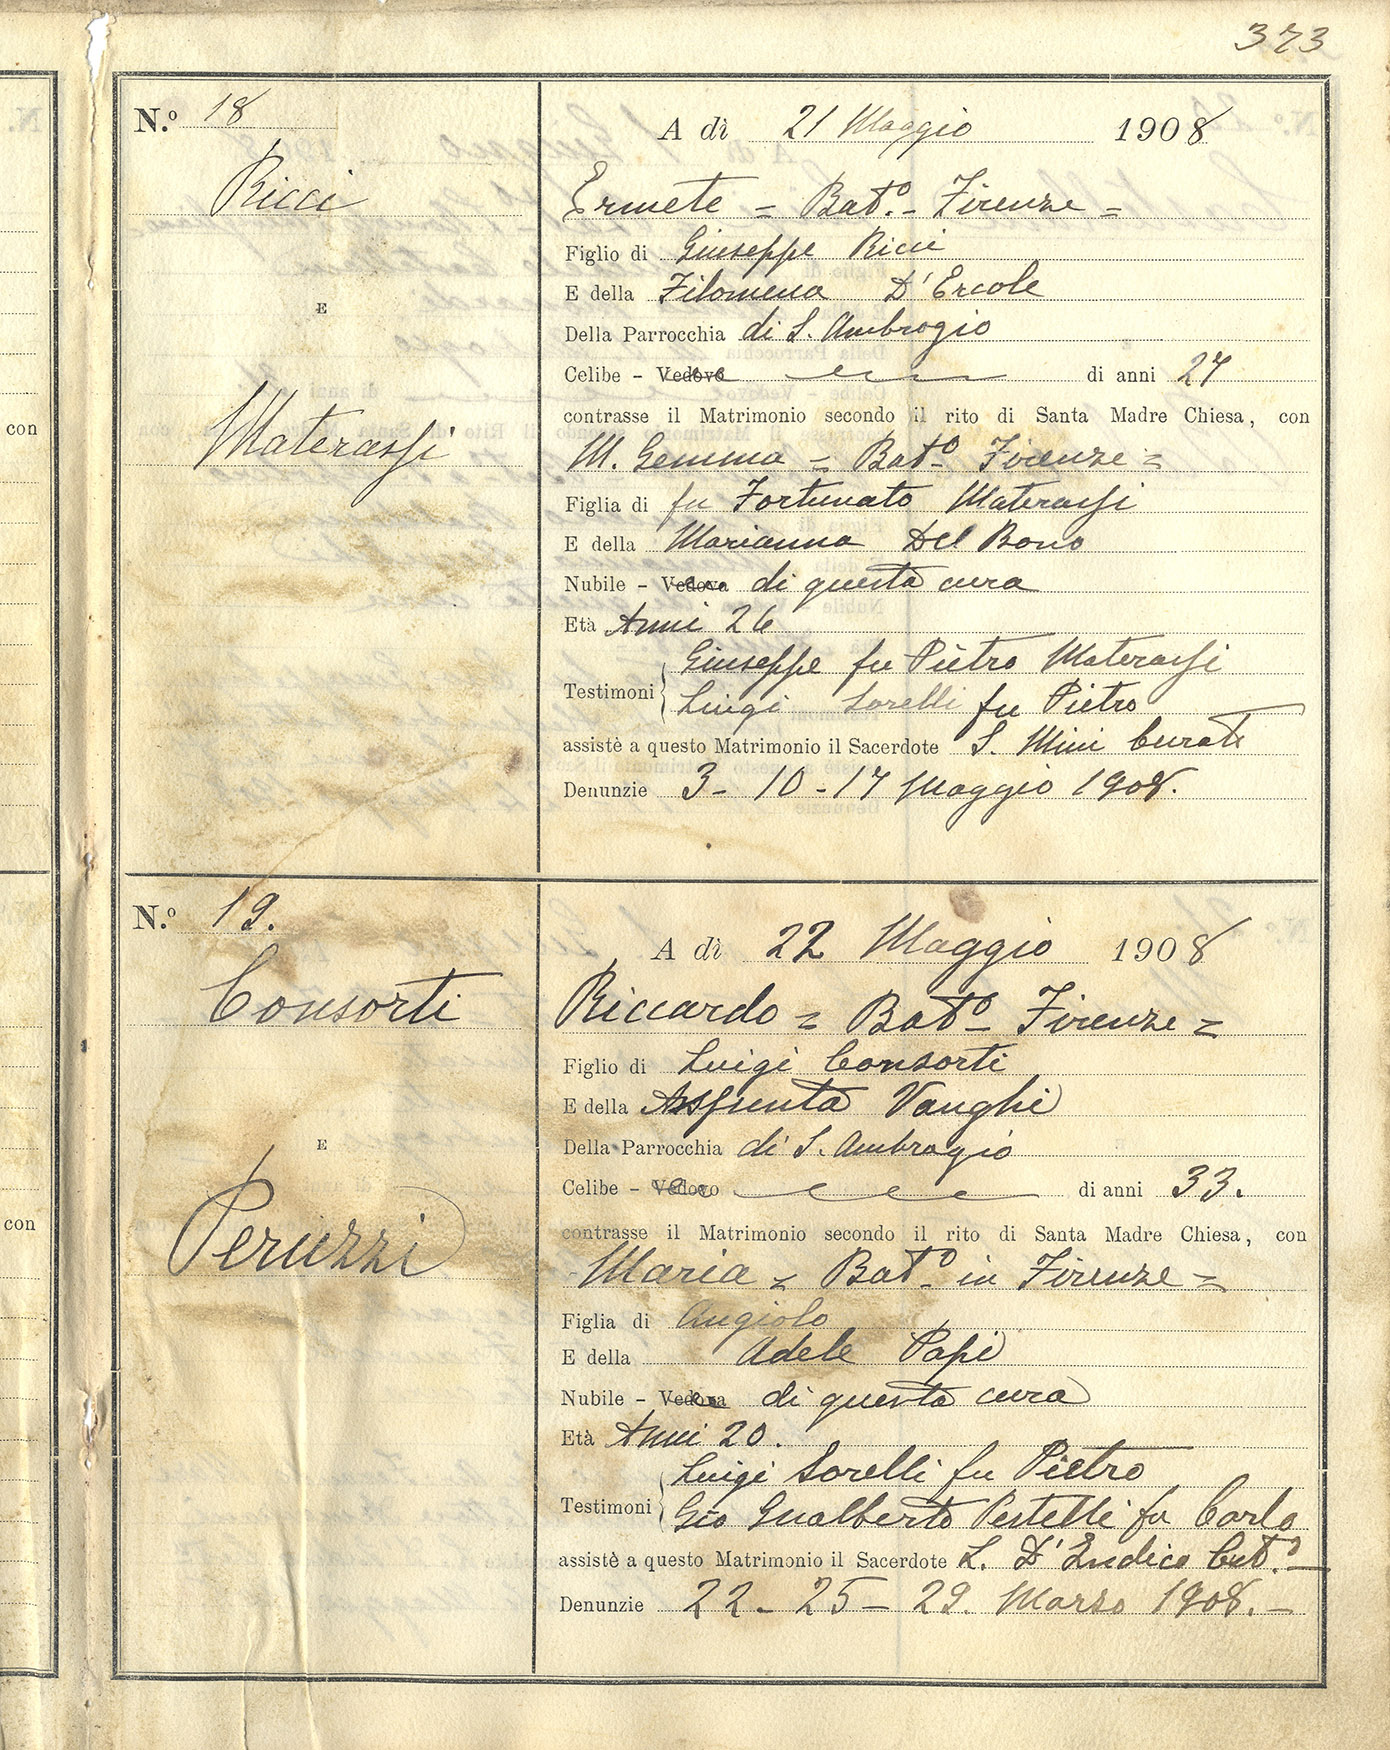 373
N.º 18
A dì 21 Maggio 1908
Ricci
E
Materassi
Ermete = Bat.º - Firenze =
Figlio di Giuseppe Ricci
E della Filomena D'Ercole
Della Parrocchia di S. Ambrogio
Celibe - Vedovo di anni 27
contrasse il Matrimonio secondo il rito di Santa Madre Chiesa, con
M. Gemma = Batº Firenze =
Figlia di fu Fortunato Materassi
E della Marianna Del Bono
Nubile - Vedova di questa cura
Età Anni 26
Testimoni Giuseppe fu Pietro Materassi
Luigi Sorelli fu Pietro
assistè a questo Matrimonio il Sacerdote S. Mini Curato
Denunzie 3 - 10 - 17 Maggio 1908.
N.º 19.
A dì 22 Maggio 1908
Consorti
E
Peruzzi
Riccardo = Batº - Firenze =
Figlio di Luigi Consorti
E della Assunta Vanghi
Della Parrocchia di S. Ambrogio
Celibe - Vedovo di anni 33.
contrasse il Matrimonio secondo il rito di Santa Madre Chiesa, con
Maria = Batº - in Firenze =
Figlia di Angiolo
E della Adele Papi
Nubile - Vedova di questa cura
Età Anni 20.
Testimoni Luigi Sorelli fu Pietro
Gio Gualberto fu Carlo
assistè a questo Matrimonio il Sacerdote L. D'Endice
Denunzie 22 - 25 - 29. Marzo 1908. -
con
con